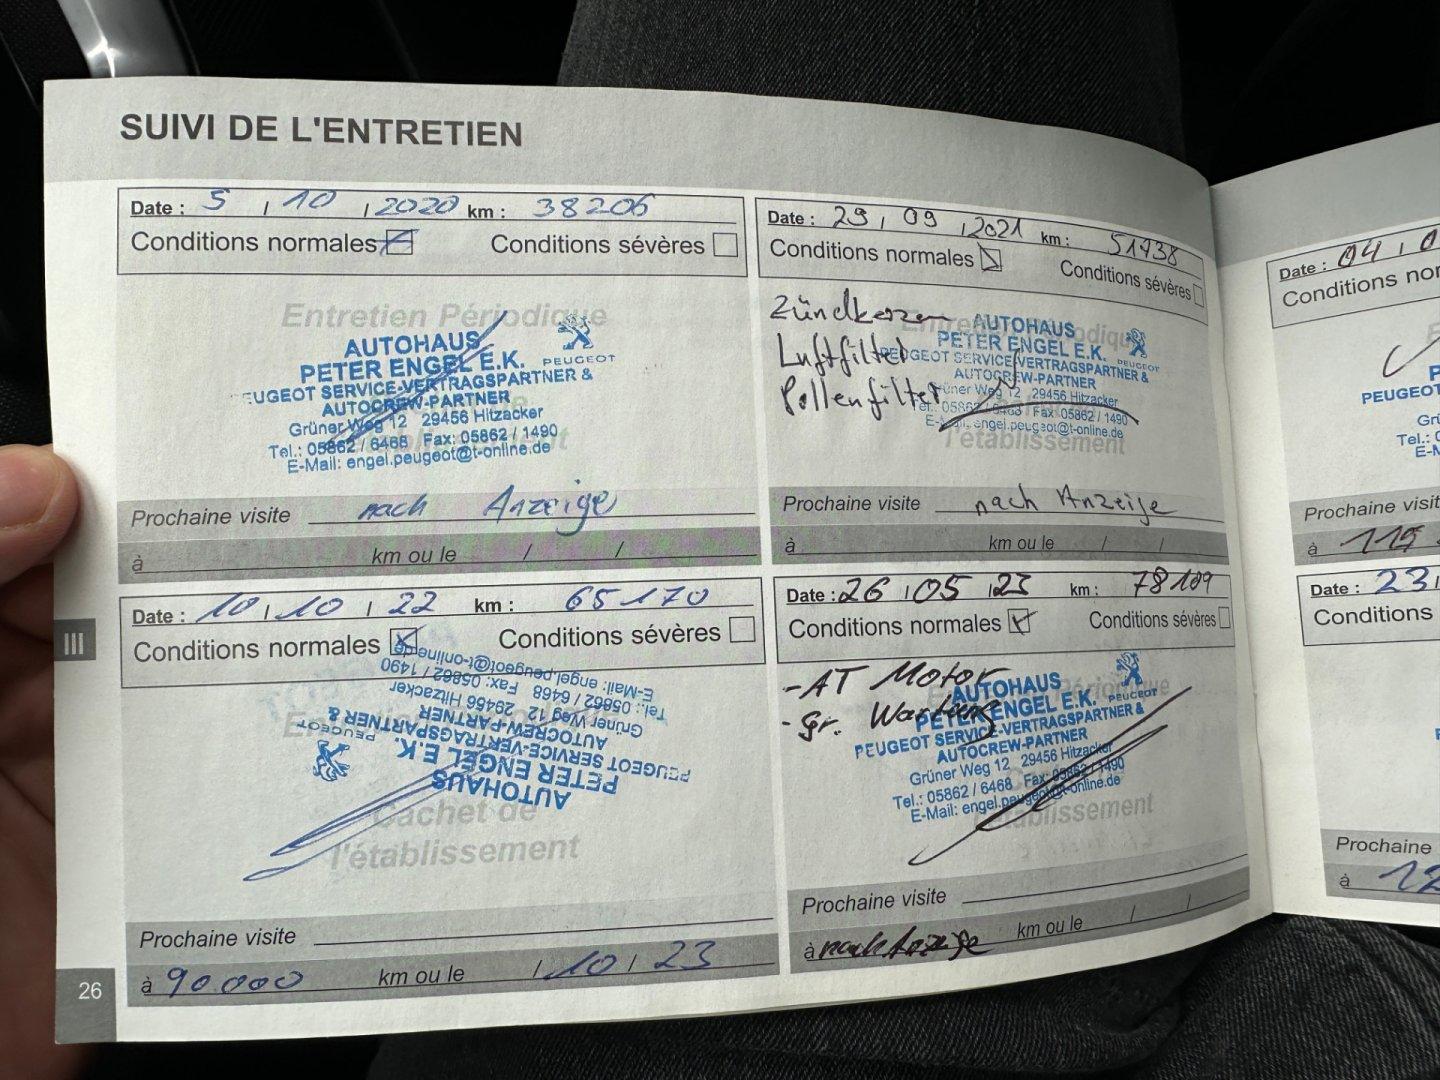 SUIVI DE L'ENTRETIEN
Date : 5 / 10 / 2020 km : 38206
Conditions normales Conditions sévères
Entretien Périodique
AUTOHAUS
PETER ENGEL E.K.
PEUGEOT
EUGEOT SERVICE-VERTRAGSPARTNER &
AUTOCREW-PARTNER
Grüner Weg 12 29456 Hitzacker
Tel.: 05862 / 6468 Fax: 05862 / 1490
E-Mail: engel.peugeot@t-online.de
Prochaine visite nach Anzeige
à km ou le / /
Date : 29 / 09 / 2021 km : 51738
Conditions normales Conditions sévères
Zündkerzen
Luftfilter
Pollenfilter
AUTOHAUS
PETER ENGEL E.K.
PEUGEOT
PEUGEOT SERVICE-VERTRAGSPARTNER &
AUTOCREW-PARTNER
Grüner Weg 12 29456 Hitzacker
Tel.: 05862 / 6468 Fax: 05862 / 1490
E-Mail: engel.peugeot@t-online.de
l'établissement
Prochaine visite nach Anzeige
à km ou le / /
Date : 10 / 10 / 22 km : 65170
Conditions normales Conditions sévères
AUTOHAUS
PETER ENGEL E.K.
PEUGEOT
PEUGEOT SERVICE-VERTRAGSPARTNER &
AUTOCREW-PARTNER
Grüner Weg 12 29456 Hitzacker
Tel.: 05862 / 6468 Fax: 05862 / 1490
E-Mail: engel.peugeot@t-online.de
Cachet de
l'établissement
Prochaine visite
à 90.000 km ou le / 10 / 23
Date : 26 / 05 / 23 km : 78189
Conditions normales Conditions sévères
- AT Motor
- gr. Wartung
AUTOHAUS
PETER ENGEL E.K.
PEUGEOT
PEUGEOT SERVICE-VERTRAGSPARTNER &
AUTOCREW-PARTNER
Grüner Weg 12 29456 Hitzacker
Tel.: 05862 / 6468 Fax: 05862 / 1490
E-Mail: engel.peugeot@t-online.de
l'établissement
Prochaine visite
à nach Anzeige km ou le / /
III
26
Date : 04 / 0
Conditions nor
PEUGEOT
Tel.:
Prochaine visit
à 115
Date : 23 /
Conditions
Prochaine
à 12